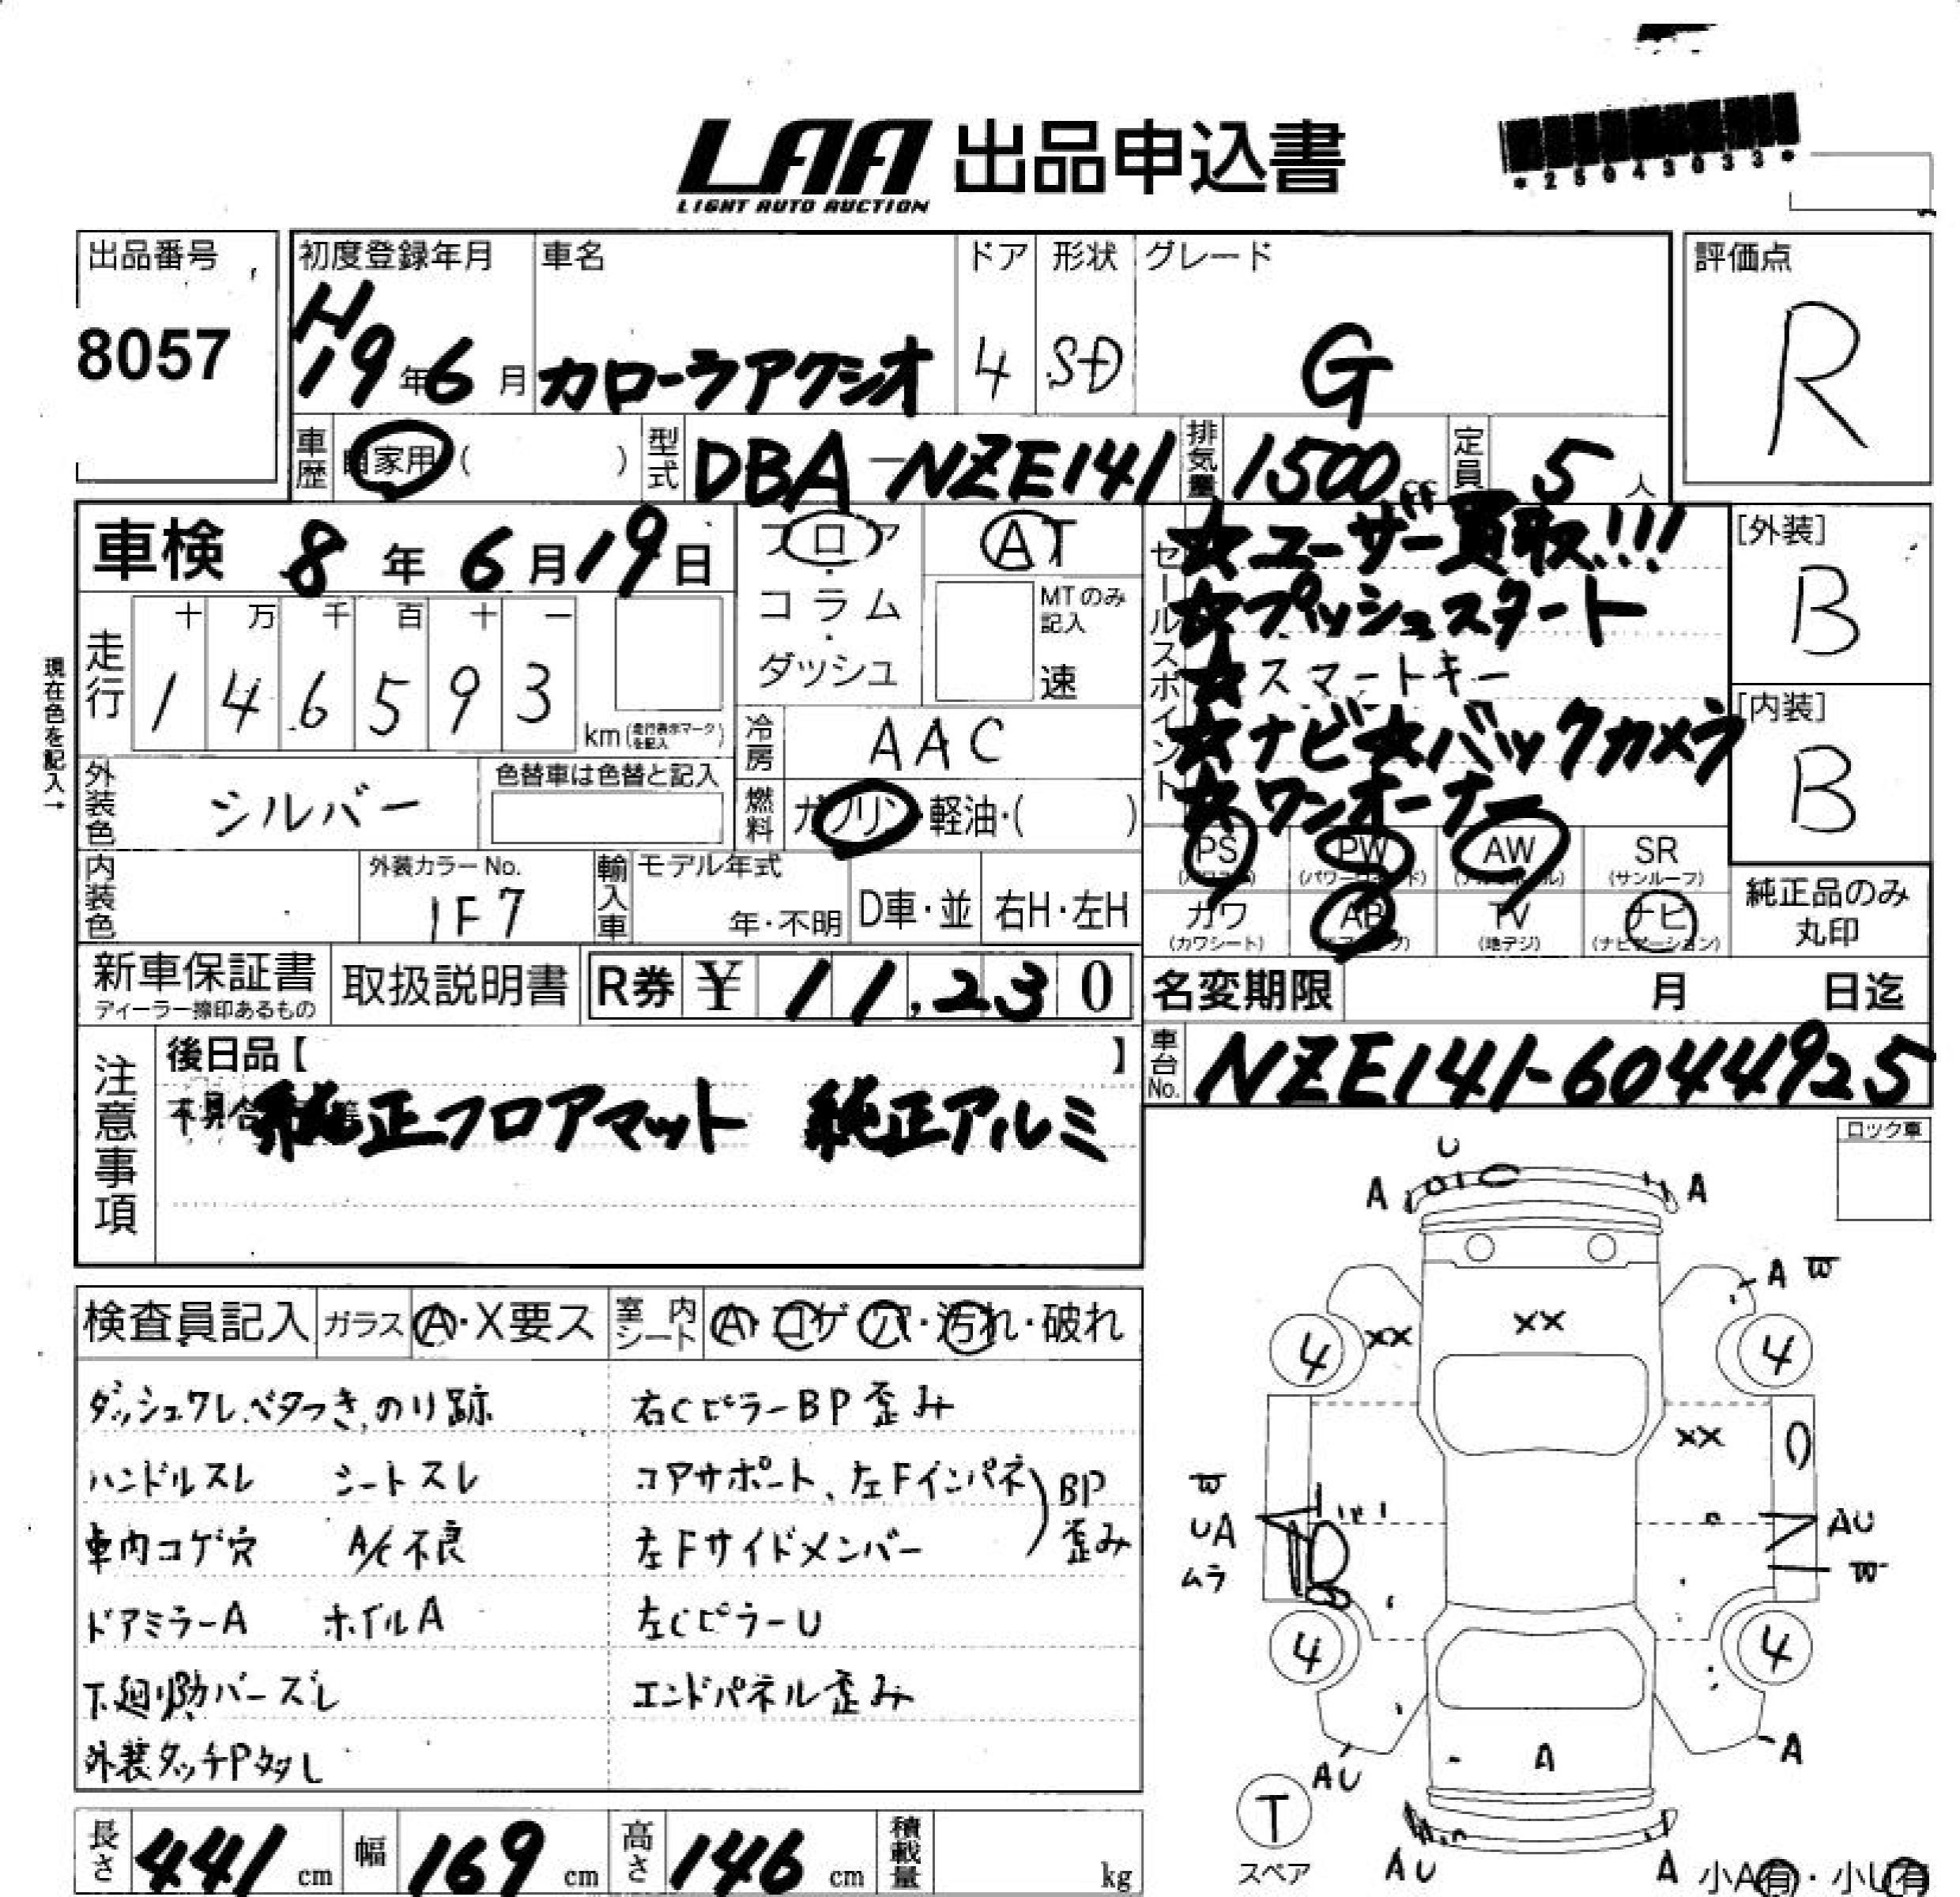 LAA 出品申込書
LIGHT AUTO AUCTION
*25043033*
出品番号
8057
初度登録年月 車名 ドア 形状 グレード 評価点
H19年6月 カローラアクシオ 4 SD G R
車歴 自家用 ( ) 型式 DBA-NZE141 排気量 1500cc 定員 5人
車検 8年6月19日
フロア・コラム・ダッシュ
AT
MTのみ記入
速
セールスポイント
★ユーザー買取!!!
★プッシュスタート
★スマートキー
★ナビ★バックカメラ
★ワンオーナー
[外装]
B
[内装]
B
現在色を記入→
走行 十 万 千 百 十 一
1 4 6 5 9 3 km(走行表示マークを記入)
冷房 AAC
外装色 シルバー 色替車は色替と記入
燃料 ガソリン・軽油・( )
PS PW AW SR
(パワステ) (パワーウインド) (アルミホイール) (サンルーフ)
カワ AB TV ナビ
(カワシート) (エアバッグ) (地デジ) (ナビゲーション)
純正品のみ丸印
内装色 外装カラーNo. 1F7
輸入車 モデル年式 年・不明 D車・並 右H・左H
新車保証書 取扱説明書 R券 ¥11,230
ディーラー捺印あるもの
名変期限 月 日迄
車台No. NZE141-6044925
注意事項
後日品【 】
純正フロアマット 純正アルミ
ロック車
検査員記入 ガラス A・X要ス 室内シート A・コゲ・穴・汚れ・破れ
ダッシュワレ、ベタつき、のり跡 右CピラーBP歪み
ハンドルスレ シートスレ コアサポート、左Fインパネ
車内コゲ穴 A/C不良 左Fサイドメンバー BP歪み
ドアミラーA ホイルA 左CピラーU
下廻り防バーズレ エンドパネル歪み
外装タッチPタタし
U
A A
A W
XX XX
4 4
XX
W
UA AU
ムラ W
4 4
A
AU A
T
スペア
AU A
小A有・小U有
長さ 441cm 幅 169cm 高さ 146cm 積載量 kg